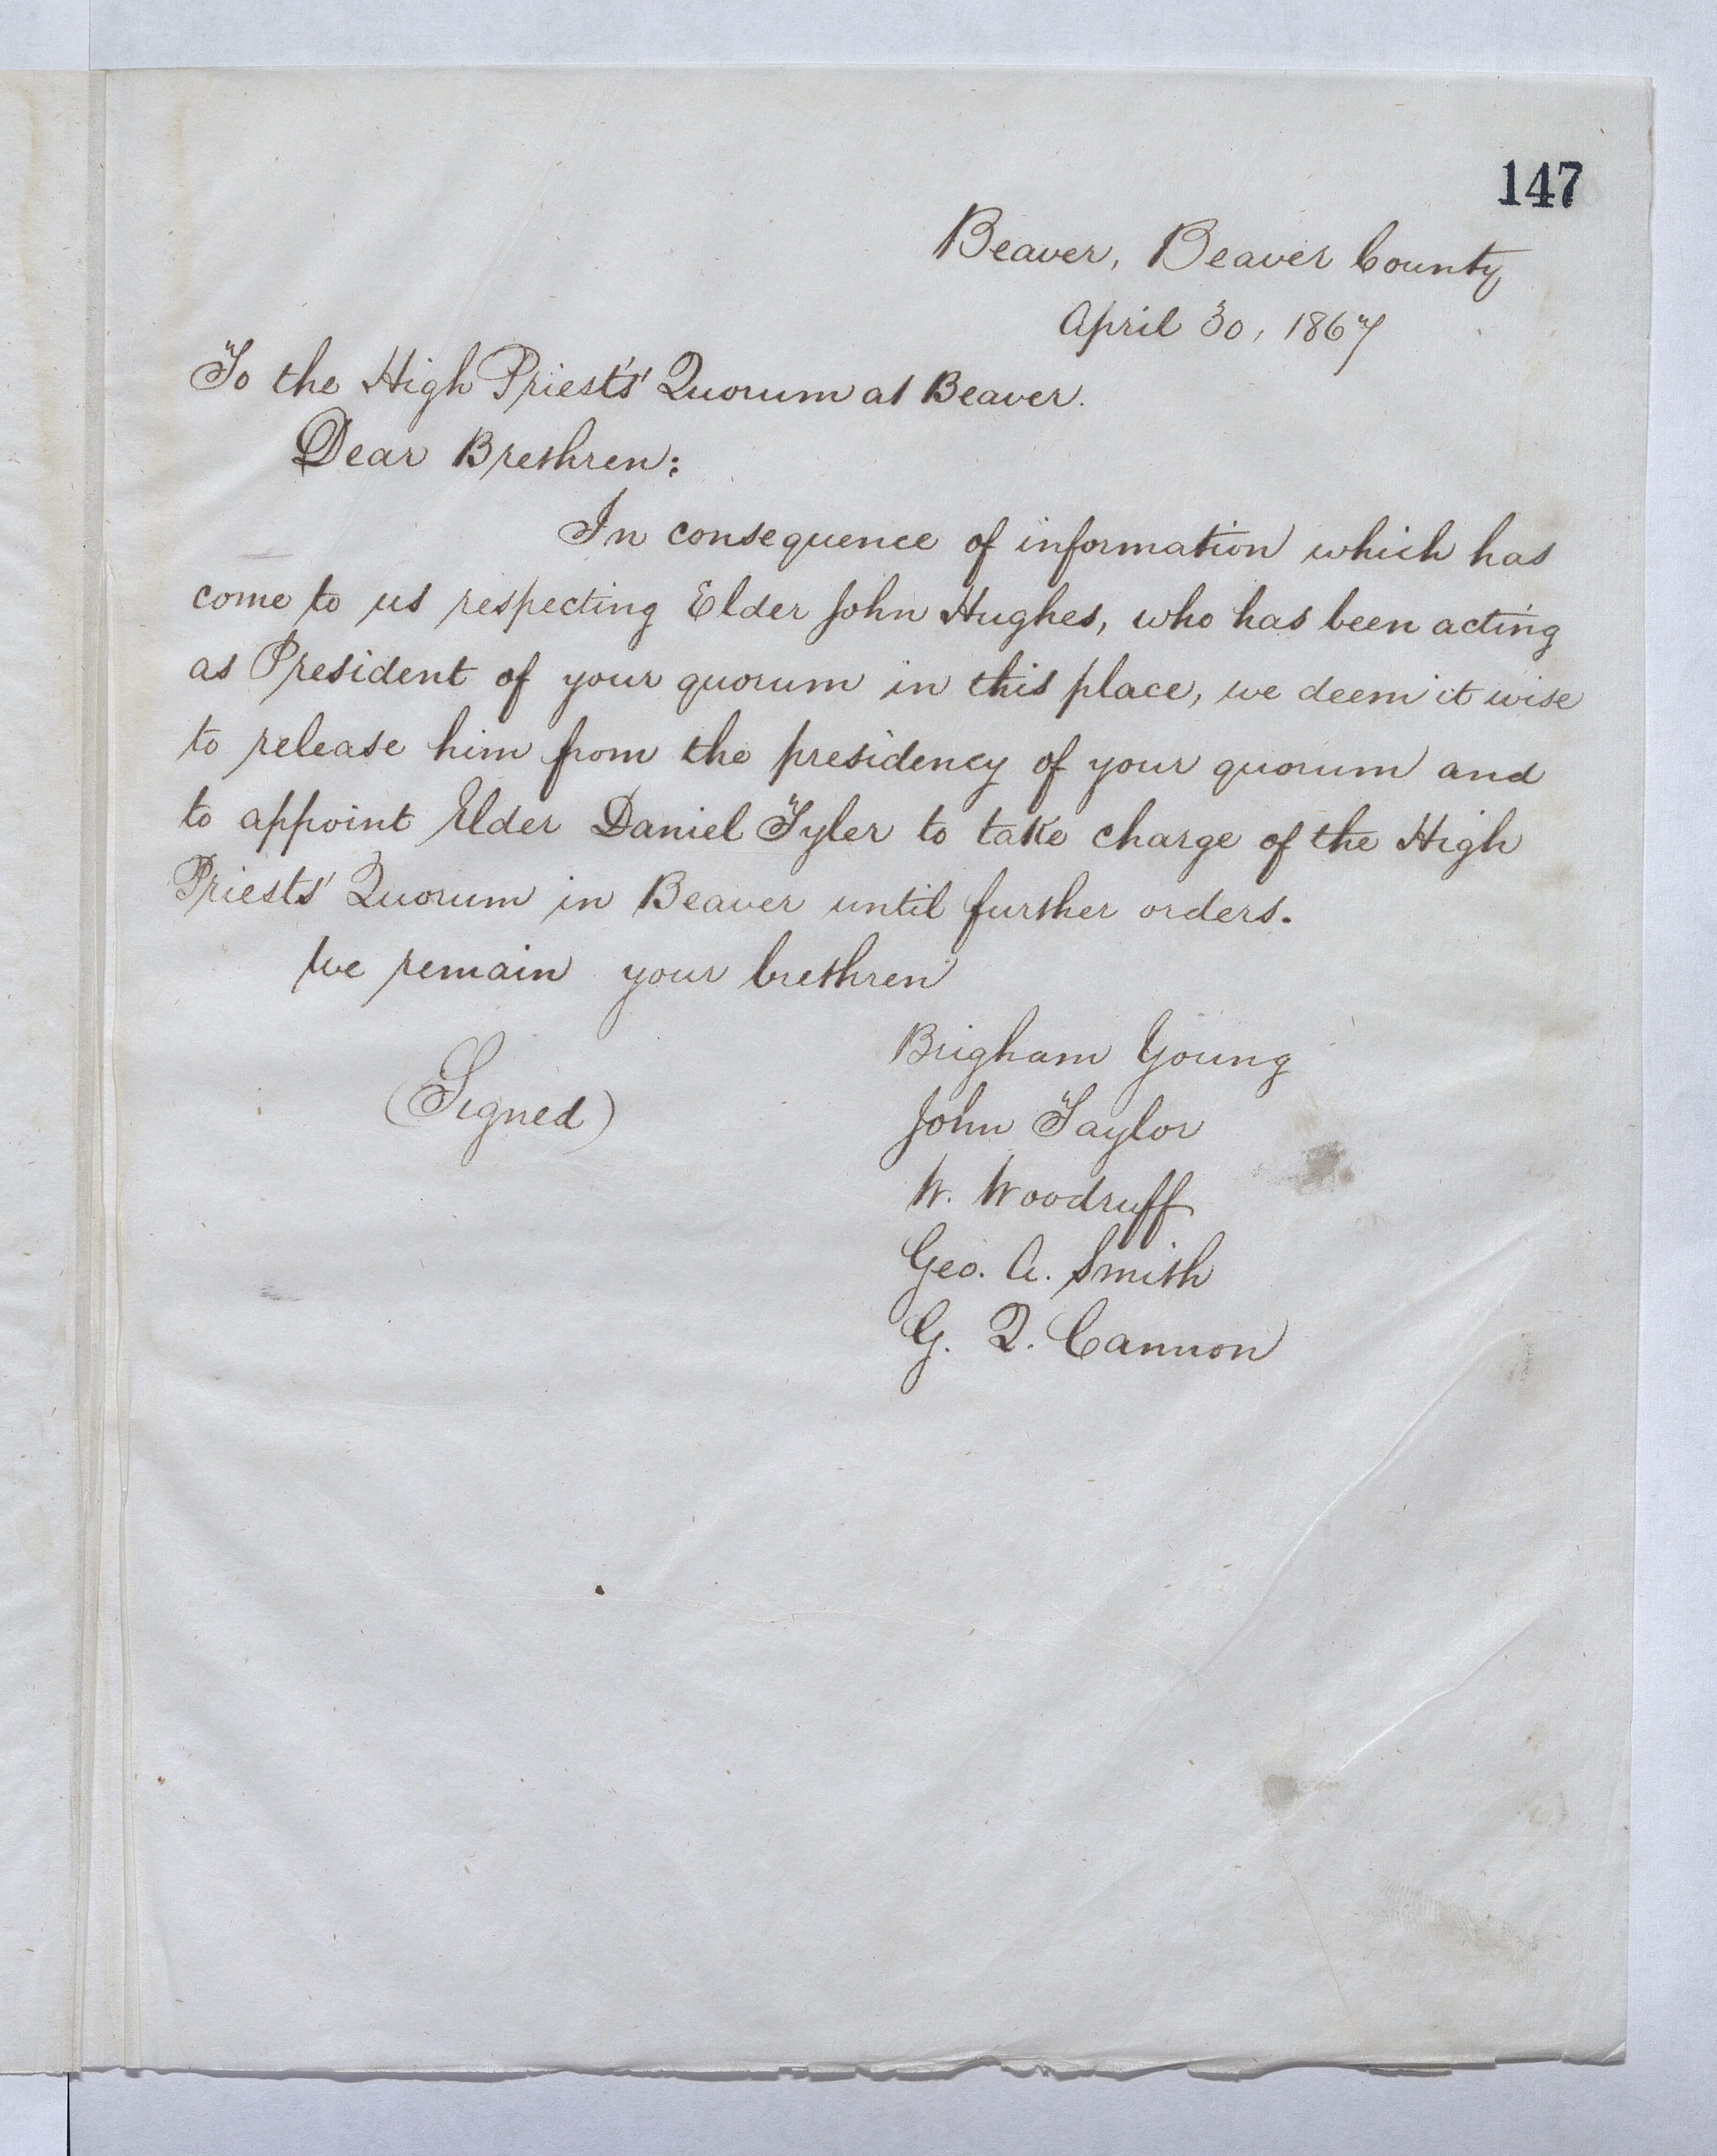 147
Beaver, Beaver County
April 30, 1867
To the High Priests' Quorum at Beaver.
Dear Brethren:
In consequence of information which has
come to us respecting Elder John Hughes, who has been acting
as President of your quorum in this place, we deem it wise
to release him from the presidency of your quorum and
to appoint Elder Daniel Tyler to take charge of the High
Priests' Quorum in Beaver until further orders.
We remain your brethren
Brigham Young
(Signed)
John Taylor
W. Woodruff
Geo. A. Smith
G. Q. Cannon